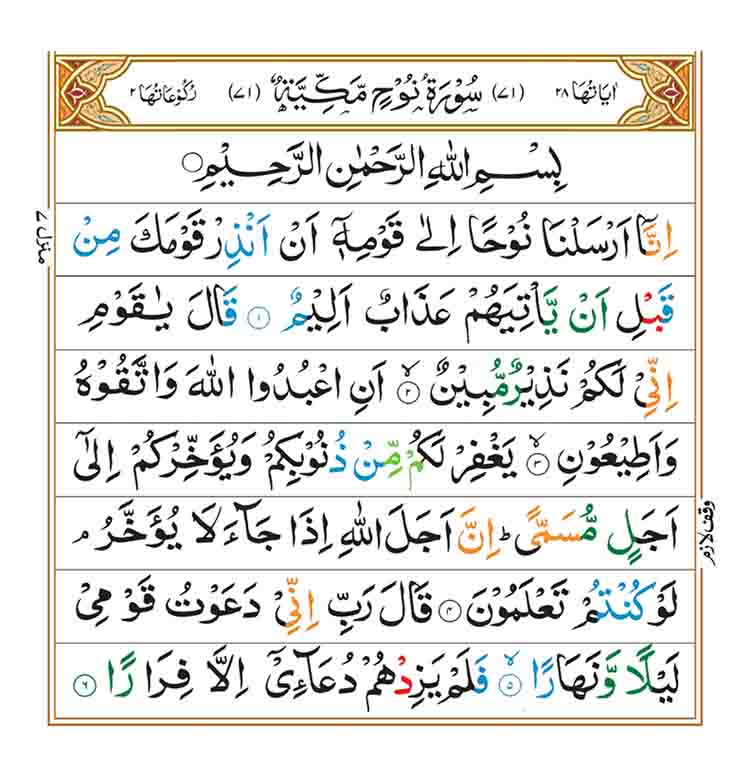 اٰیَاتُهَا ٢٨ (٧١) سُوْرَةُ نُوْحٍ مَّكِّیَّةٌ (٧١) رُكُوْعَاتُهَا ٢
بِسْمِ اللّٰهِ الرَّحْمٰنِ الرَّحِیْمِ
اِنَّاۤ اَرْسَلْنَا نُوْحًا اِلٰی قَوْمِهٖۤ اَنْ اَنْذِرْ قَوْمَكَ مِنْ
قَبْلِ اَنْ یَّاْتِیَهُمْ عَذَابٌ اَلِیْمٌ ١ قَالَ یٰقَوْمِ
اِنِّیْ لَكُمْ نَذِیْرٌ مُّبِیْنٌ ٢ۙ اَنِ اعْبُدُوا اللّٰهَ وَاتَّقُوْهُ
وَاَطِیْعُوْنِ ٣ۙ یَغْفِرْ لَكُمْ مِّنْ ذُنُوْبِكُمْ وَیُؤَخِّرْكُمْ اِلٰۤی
اَجَلٍ مُّسَمًّی ؕ اِنَّ اَجَلَ اللّٰهِ اِذَا جَآءَ لَا یُؤَخَّرُ ۘ
لَوْ كُنْتُمْ تَعْلَمُوْنَ ٤ قَالَ رَبِّ اِنِّیْ دَعَوْتُ قَوْمِیْ
لَیْلًا وَّنَهَارًا ٥ۙ فَلَمْ یَزِدْهُمْ دُعَآءِیْۤ اِلَّا فِرَارًا ٦
منزل ٧
وقف لازم